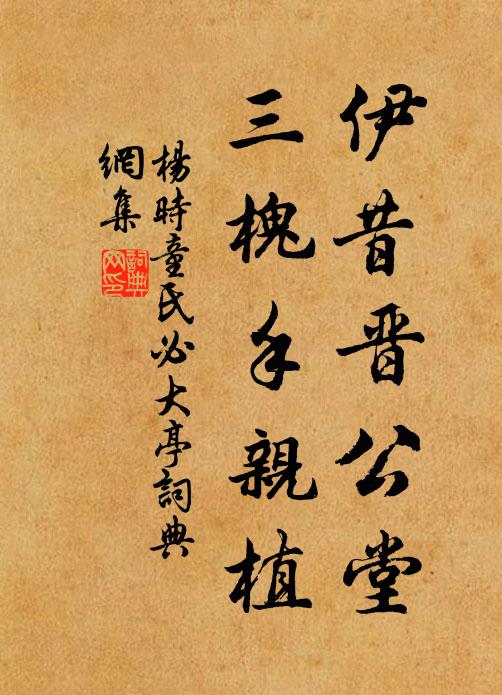 伊昔晋公堂
三槐手親植
楊時童氏必大亭詞典
網集
詞典
网印